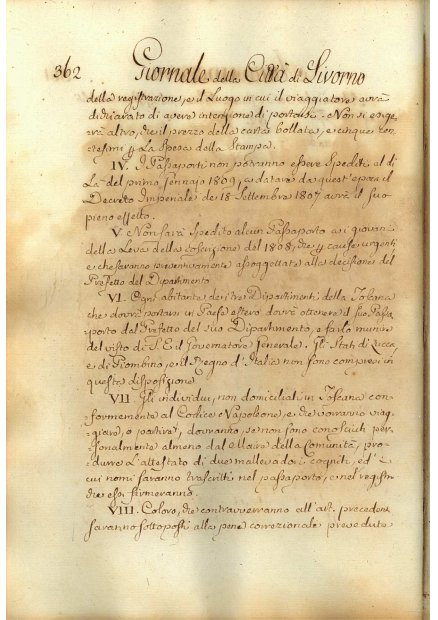 362 Giornale della Città di Livorno
della registrazione, e il Luogo in cui il viaggiatore avrà
dichiarato di avere intenzione di portarsi. Non si esige
rà altro, che il prezzo della carta bollata, e cinque Cen
tesimi p La Spesa della Stampa.
IV. I Passaporti non potranno essere Spediti al di
Là del primo Gennajo 1809, a datare da quest'epoca il
Decreto Imperiale de 18 Settembre 1807 avrà il suo
pieno effetto.
V. Non sarà Spedito alcun Passaporto ai giovani
della Leva della coscrizione del 1808, che p cause urgenti
e che saranno preventivamente assoggettate alla decisione del
Prefetto del Dipartimento
VI. Ogni abitante dei tre Dipartimenti della Toscana
che dovrà portarsi in Paese estero dovrà ottenere il suo Passa
porto dal Prefetto del suo Dipartimento, e farlo munire
del visto di S. E. il Governatore Generale. Gli Stati di Lucca,
e di Piombino, e il Regno d'Italia non sono compresi in
questa disposizione
VII Gli individui, non domiciliati in Toscana con-
formemente al Codice Napoleone, e che vorranno viag-
giare, o partire, dovranno, se non sono conosciuti per-
sonalmente almeno dal Maire della Comunità, pro-
durre L'attestato di due mallevadori cogniti, ed i
cui nomi saranno trascritti nel passaporto, e nel registro
che essi firmeranno.
VIII. Coloro, che contravverranno all'art. precedente
saranno sottoposti alle pene correzionali prevedute